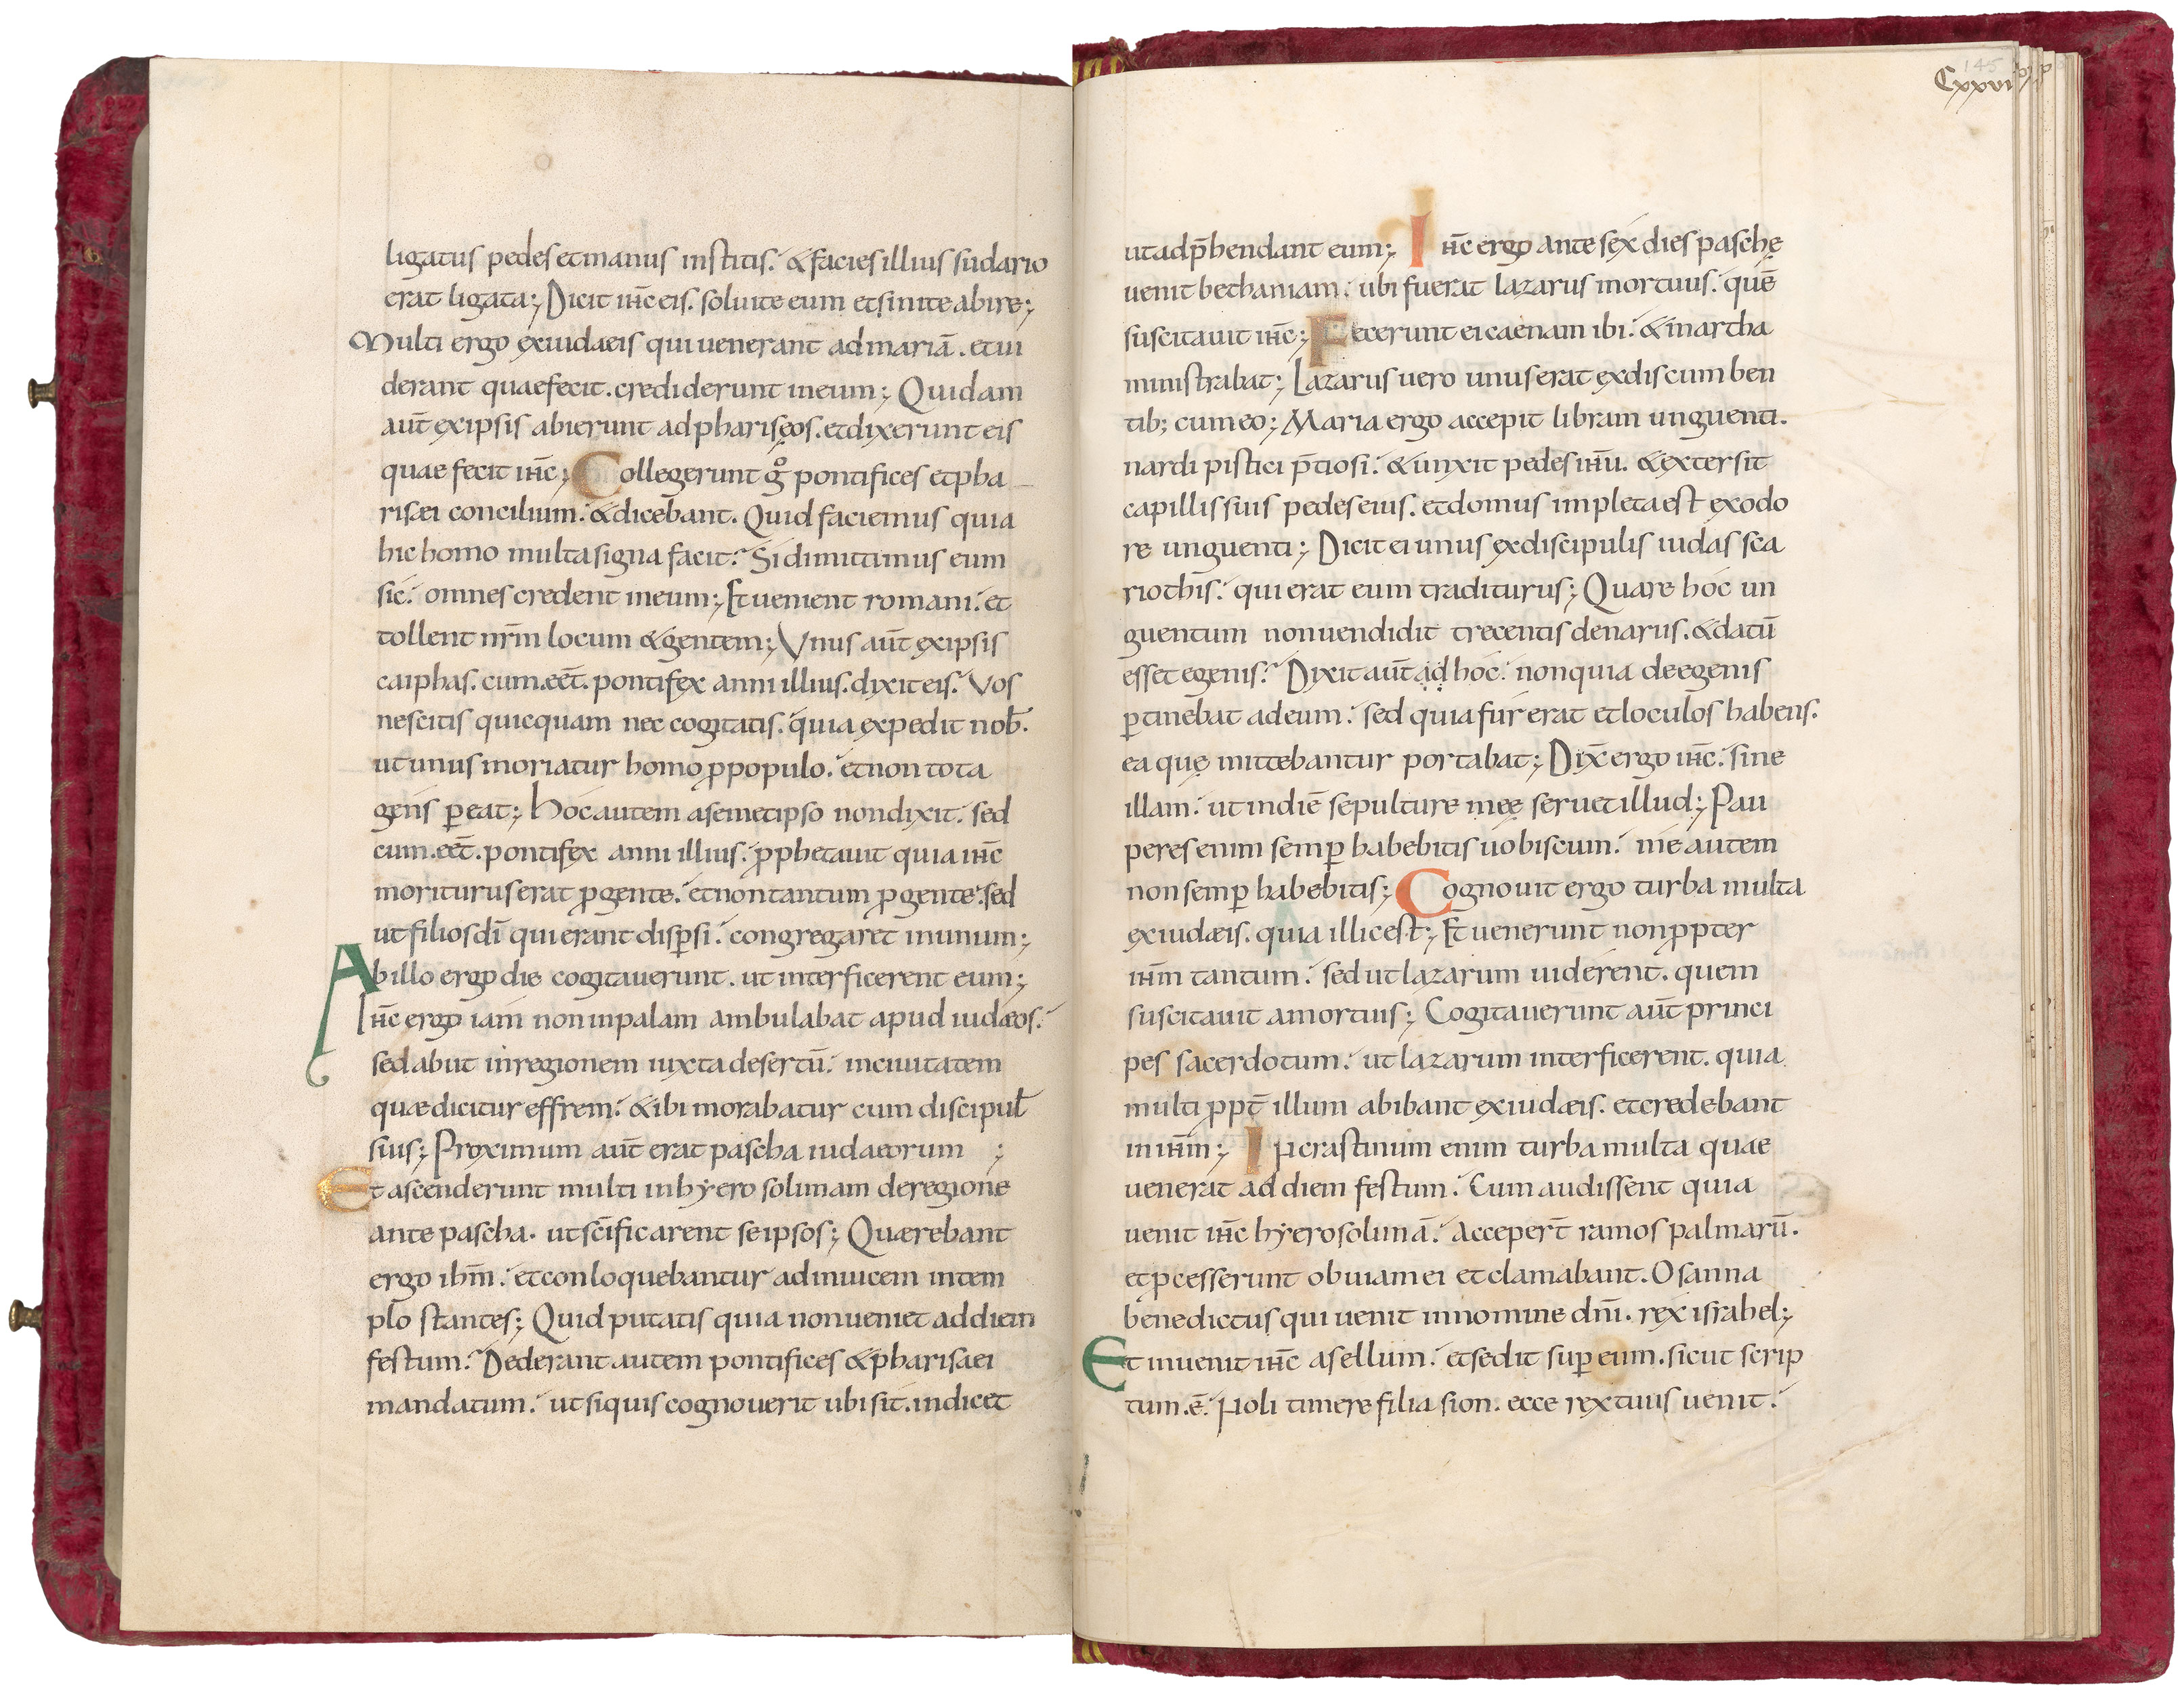 ligatus pedes et manus institis. & facies illius sudario
erat ligata; Dicit ih̅c eis. soluite eum et sinite abire;
Multi ergo ex iudaeis qui uenerant ad mariā. et ui
derant quae fecit. crediderunt in eum; Quidam
aut̅ ex ipsis abierunt ad phariseos. et dixerunt eis
quae fecit ih̅c; Collegerunt gͦ pontifices et pha
risaei concilium. & dicebant. Quid faciemus quia
hic homo multa signa facit? Si dimittimus eum
sic. omnes credent in eum; Et uenient romani. et
tollent nr̅m locum & gentem; Vnus aut̅ ex ipsis
caiphas. cum eēt. pontifex anni illius. dixit eis. Vos
nescitis quicquam nec cogitatis. quia expedit nob̅.
ut unus moriatur homo ꝓ populo. et non tota
gens ꝑeat; Hoc autem a semetipso non dixit. sed
cum eēt. pontifex anni illius. ꝓphetauit quia ih̅c
moriturus erat ꝓ gente. et non tantum ꝓ gente. sed
ut filios dī qui erant disꝑsi. congregaret in unum;
Ab illo ergo die cogitauerunt. ut interficerent eum;
Ih̅c ergo iam non in palam ambulabat apud iudæos.
sed abiit in regionem iuxta desertū. in ciuitatem
quæ dicitur effrem. & ibi morabatur cum discipul̅
suis; Proximum aut̅ erat pascha iudaeorum ;
Et ascenderunt multi in hyerosolimam de regione
ante pascha. ut sc̅ificarent se ipsos; Quærebant
ergo ih̅m. et conloquebantur ad inuicem in tem
plo stantes; Quid putatis quia non ueniet ad diem
festum? Dederant autem pontifices & pharisaei
mandatum. ut si quis cognouerit ubi sit. indicet
Cxxvi
145
ut adp̅hendant eum; Ih̅c ergo ante sex dies paschę
uenit bethaniam. ubi fuerat lazarus mortuus. quē
suscitauit ih̅c; Fecerunt ei caenam ibi. & martha
ministrabat; Lazarus uero unus erat ex discumben
tib; cum eo; Maria ergo accepit libram unguenti.
nardi pistici p̅tiosi. & unxit pedes ih̅u. & extersit
capillis suis pedes eius. et domus impleta est ex odo
re unguenti; Dicit ei unus ex discipulis iudas sca
riothis. qui erat eum traditurus; Quare hoc un
guentum non uendidit trecentis denariis. & datū
esset egenis? Dixit aut̅ ad hoc. non quia de egenis
ꝑtinebat ad eum. sed quia fur erat et loculos habens.
ea quę mittebantur portabat; Dix̅ ergo ih̅c. sine
illam. ut in diē sepulture meę seruet illud; Pau
peres enim semꝑ habebitis uobiscum. me autem
non semꝑ habebitis; Cognouit ergo turba multa
ex iudæis. quia illic est; Et uenerunt non ꝓpter
ih̅m tantum. sed ut lazarum uiderent. quem
suscitauit a mortuis; Cogitauerunt aut̅ princi
pes sacerdotum. ut lazarum interficerent. quia
multi ꝓpt̅ illum abibant ex iudæis. et credebant
in ih̅m; In crastinum enim turba multa quae
uenerat ad diem festum. Cum audissent quia
uenit ih̅c hyerosolimā. acceper̅t ramos palmarū.
et ꝓcesserunt obuiam ei et clamabant. Osanna
benedictus qui uenit in nomine dn̅i. rex israhel;
Et inuenit ih̅c asellum. et sedit suꝑ eum. sicut scrip
tum .ē. Noli timere filia sion. ecce rex tuus uenit.